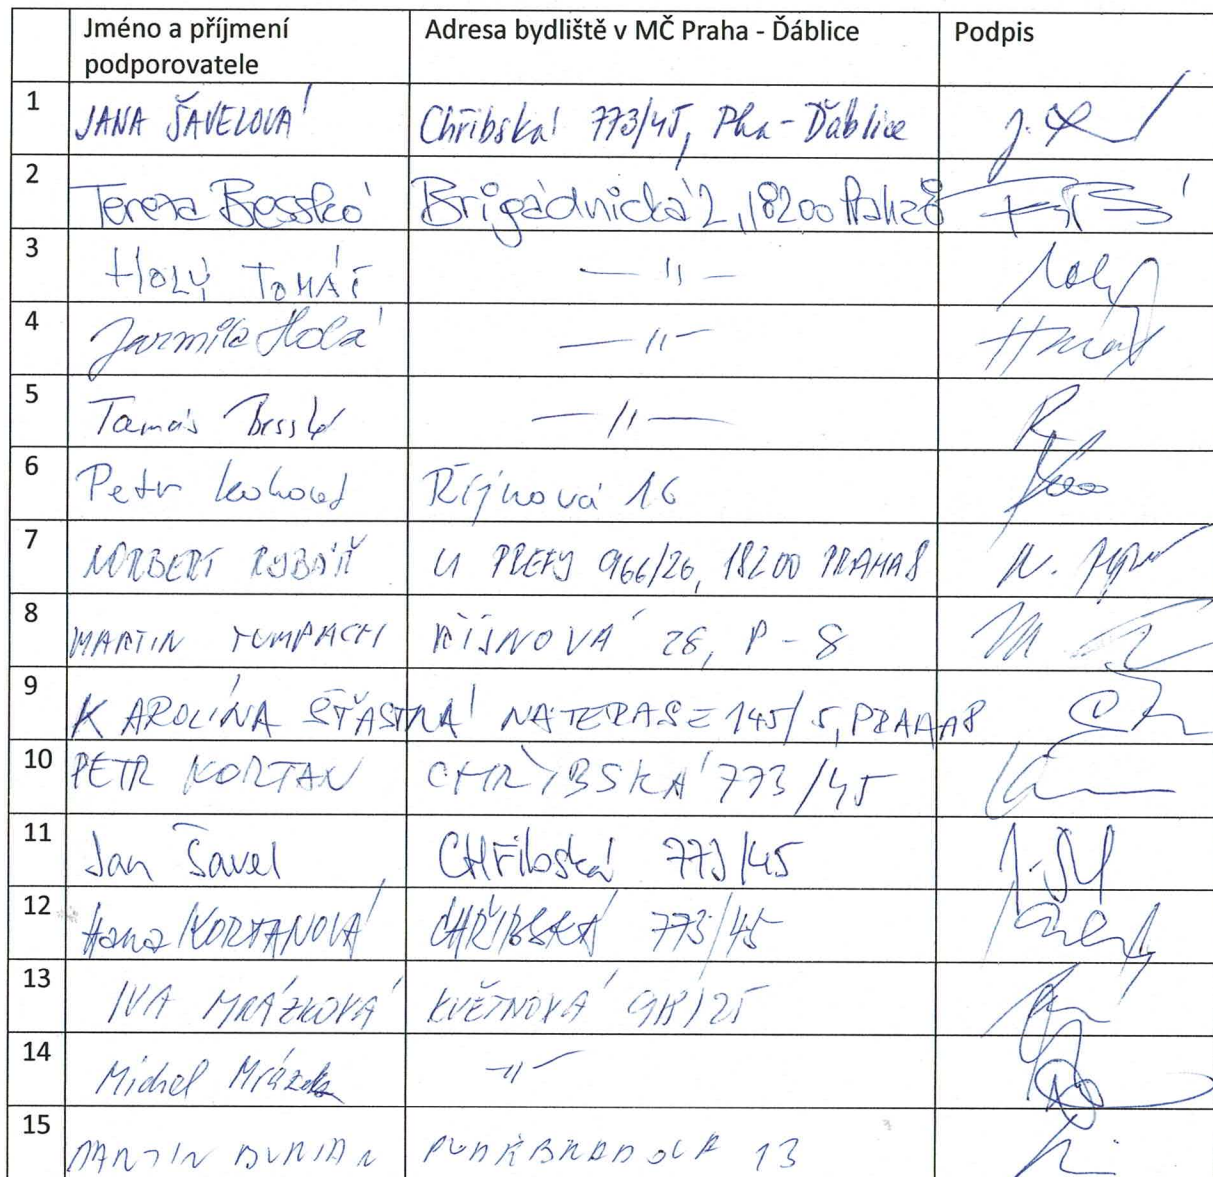 Jméno a příjmení podporovatele Adresa bydliště v MČ Praha - Ďáblice Podpis
1 JANA ŠAVELOVÁ Chřibská 773/45, Pha-Ďáblice
2 Tereza Besská Brigádnická 2, 18200 Praha 8
3 HOLÝ TOMÁŠ —〃—
4 Jarmila Holá —〃—
5 Tomáš —〃—
6 Petr Kohout Říjnová 16
7 NORBERT RYBÁŘ U PREFY 966/26, 18200 PRAHA 8
8 MARTIN TUMPACH ŘÍJNOVÁ 28, P-8
9 KAROLÍNA ŠŤASTNÁ NA TERASE 145/5, PRAHA 8
10 PETR KORTAN CHŘYBSKÁ 773/45
11 Jan Šavel CHŘibská 773/45
12 Hana KORTANOVÁ CHŘIBSKÁ 773/45
13 IVA MRÁZKOVÁ KVĚTNOVÁ
14 Michal Mrázek —〃—
15 MARTIN BURIAN 13